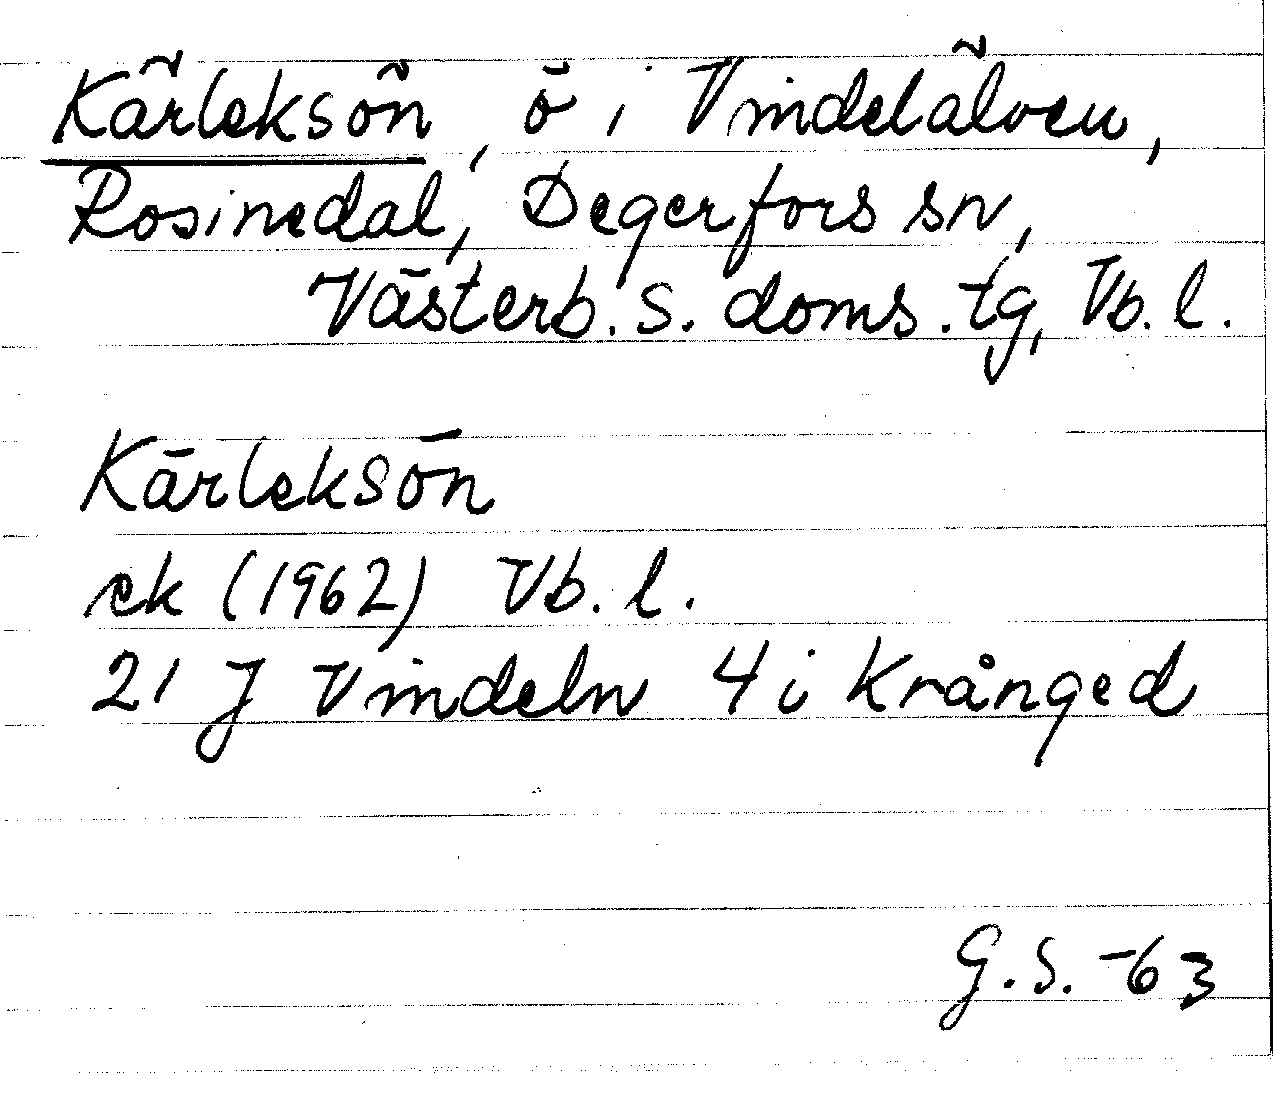 Kärleksön, ö i Vindelälven,
Rosinedal, Degerfors sn,
Västerb. s. doms. tg, Vb. l.
Kärleksön
ek (1962) Vb. l.
21 J Vindeln 4 i Krånged
G.S. -63